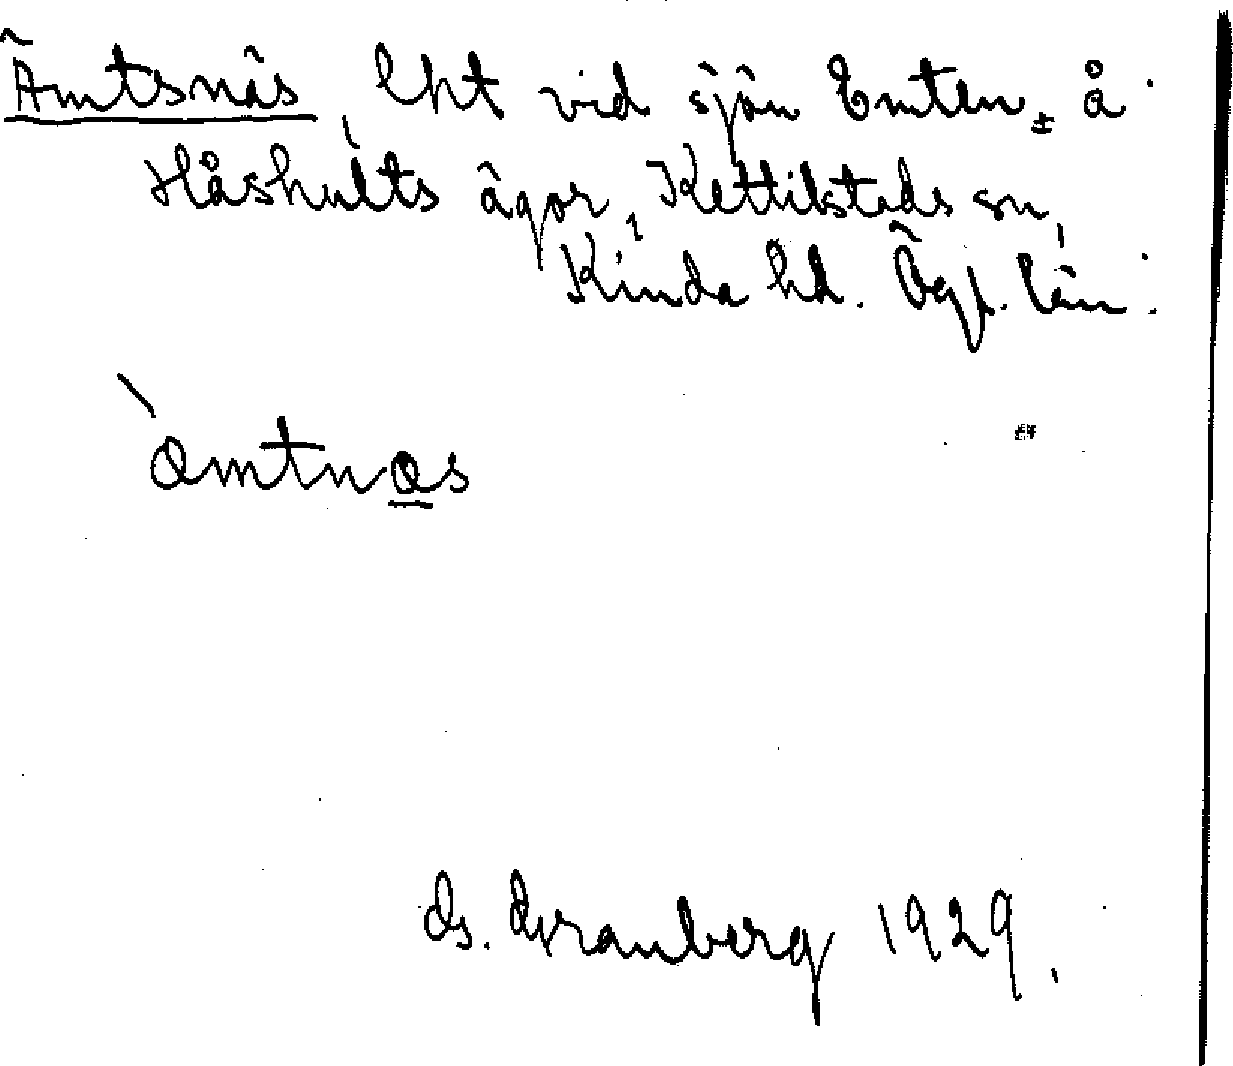 Ämtsnäs, lht vid sjön Emten, å
Håshults ägor, Kettilstads sn,
Kinda hd. Ögl. län.
àmtnas
G. Granberg 1929.